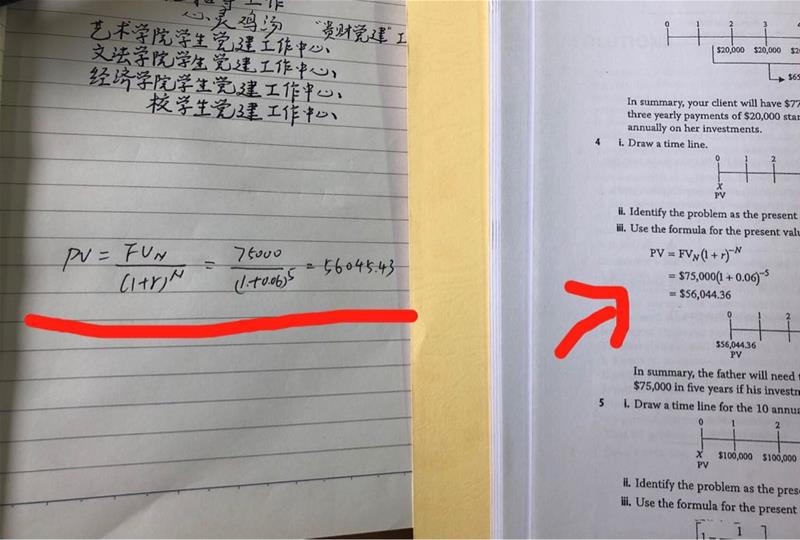 工作
心灵鸡汤 "贵财党建"工
艺术学院学生党建工作中心、
文法学院学生党建工作中心、
经济学院学生党建工作中心、
校学生党建工作中心、
PV = FV_N / (1+r)^N = 75000 / (1+0.06)^5 = 56045.43
0 1 2 3
$20,000 $20,000 $2
$65
In summary, your client will have $77
three yearly payments of $20,000 star
annually on her investments.
4 i. Draw a time line.
0 1 2
X
PV
ii. Identify the problem as the present
iii. Use the formula for the present valu
PV = FV_N(1 + r)^−N
= $75,000(1 + 0.06)^−5
= $56,044.36
0 1 2
$56,044.36
PV
In summary, the father will need t
$75,000 in five years if his investn
5 i. Draw a time line for the 10 annua
0 1 2
X $100,000 $100,000
PV
ii. Identify the problem as the pres
iii. Use the formula for the present
1